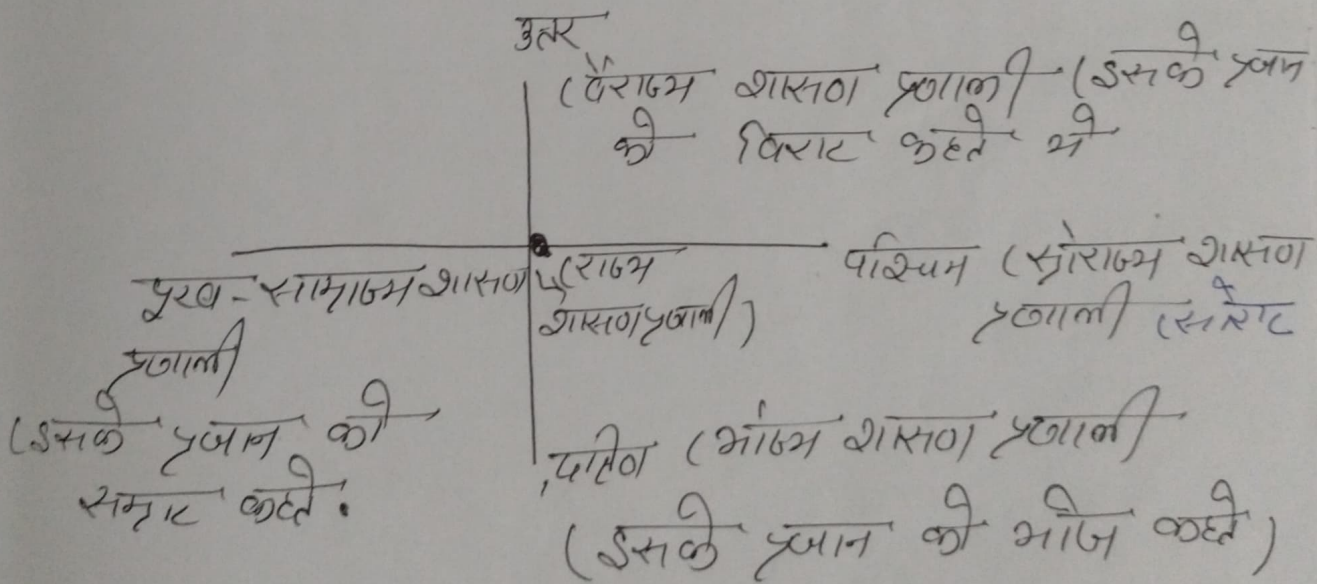 उत्तर
(वैराज्य शासण प्रणाली (इसके प्रजान
को विराट कहते थे
पूरब - साम्राज्य शासण
प्रणाली
(इसके प्रजान को
सम्राट कहते.
(राज्य
शासण प्रणाली)
पश्चिम (स्वराज्य शासण
प्रणाली
दक्षिण (भोज्य शासण प्रणाली
(इसके प्रजान को भोज कहते)